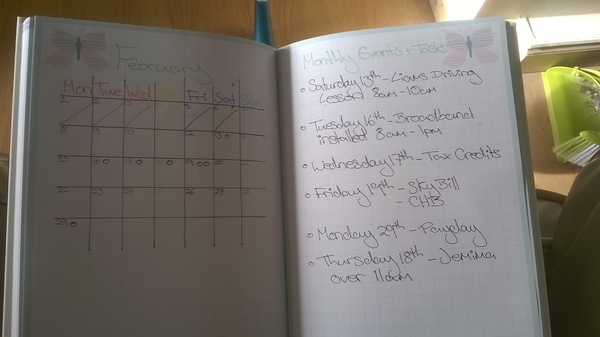 February
Mon Tue Wed Fri Sat Sun
1 2 3 5 6
8 9 10 12 13
15 16 17 19 20
22 23 24 26 27
29
Monthly Events + Tasks
Saturday 13th - Liams Driving
Lesson 8am - 10am
Tuesday 16th - Broadband
installed 8am - 1pm
Wednesday 17th - Tax Credits
Friday 19th - Sky Bill
- CHB
Monday 29th - Payday
Thursday 18th - Jemima
over 11am